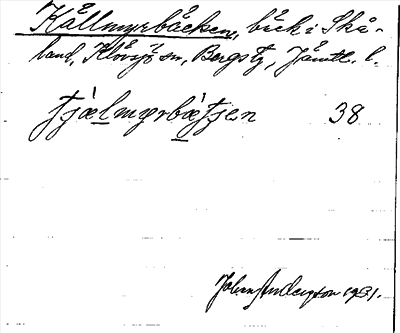 Källmyrbäcken, bäck i Skå-
land, Klövsjö sn, Bergs tg, Jämtl. l.
tjælmyrbætjen 38
Johan Anderzson 1931.